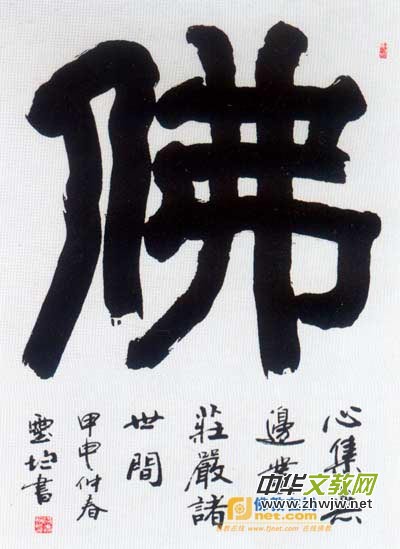 佛
心集無
邊業
莊嚴諸
世間
甲申仲春
書
中华文教网
www.zhwjw.com
net.com